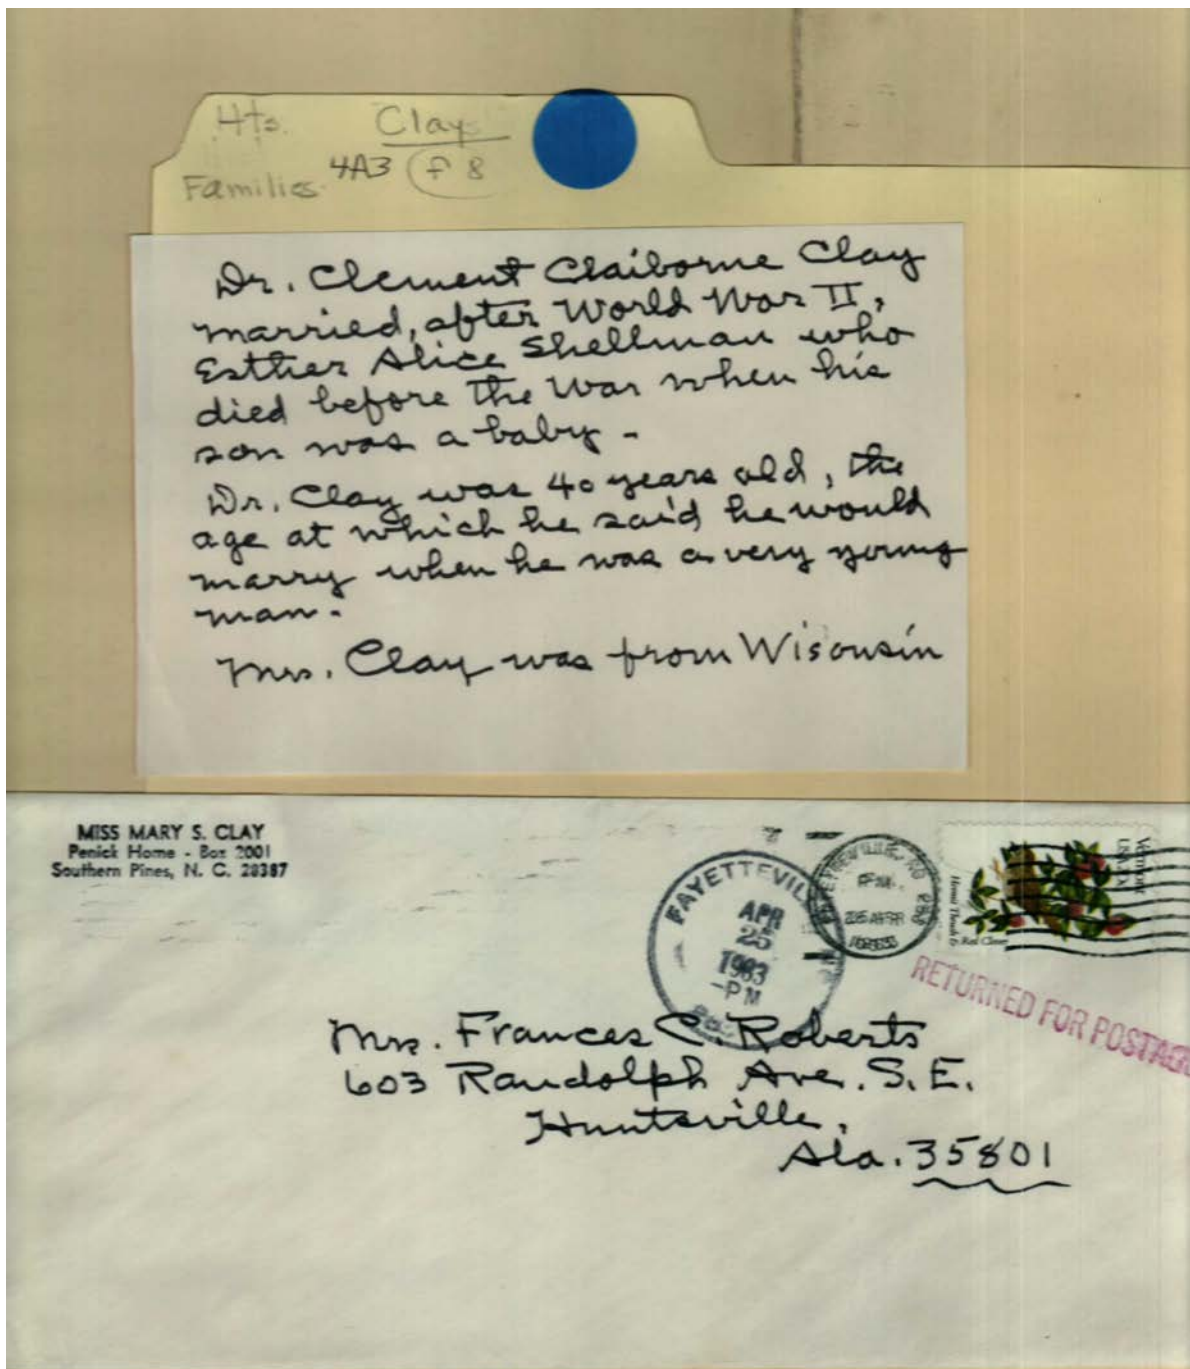 Hts. Clay
4A3 f 8
Families
Dr. Clement Claiborne Clay
married, after World War II,
Esther Alice Shellman who
died before the War when his
son was a baby -
Dr. Clay was 40 years old, the
age at which he said he would
marry when he was a very young
man -
Mrs. Clay was from Wisonsin
MISS MARY S. CLAY
Penick Home - Box 2001
Southern Pines, N. C. 28387
FAYETTEVILLE
APR
25
1983
-PM
PM
Vermont
Hermit Thrush & Red Clover
RETURNED FOR POSTAGE
Mrs. Frances C. Roberts
603 Randolph Ave. S.E.
Huntsville,
Ala. 35801